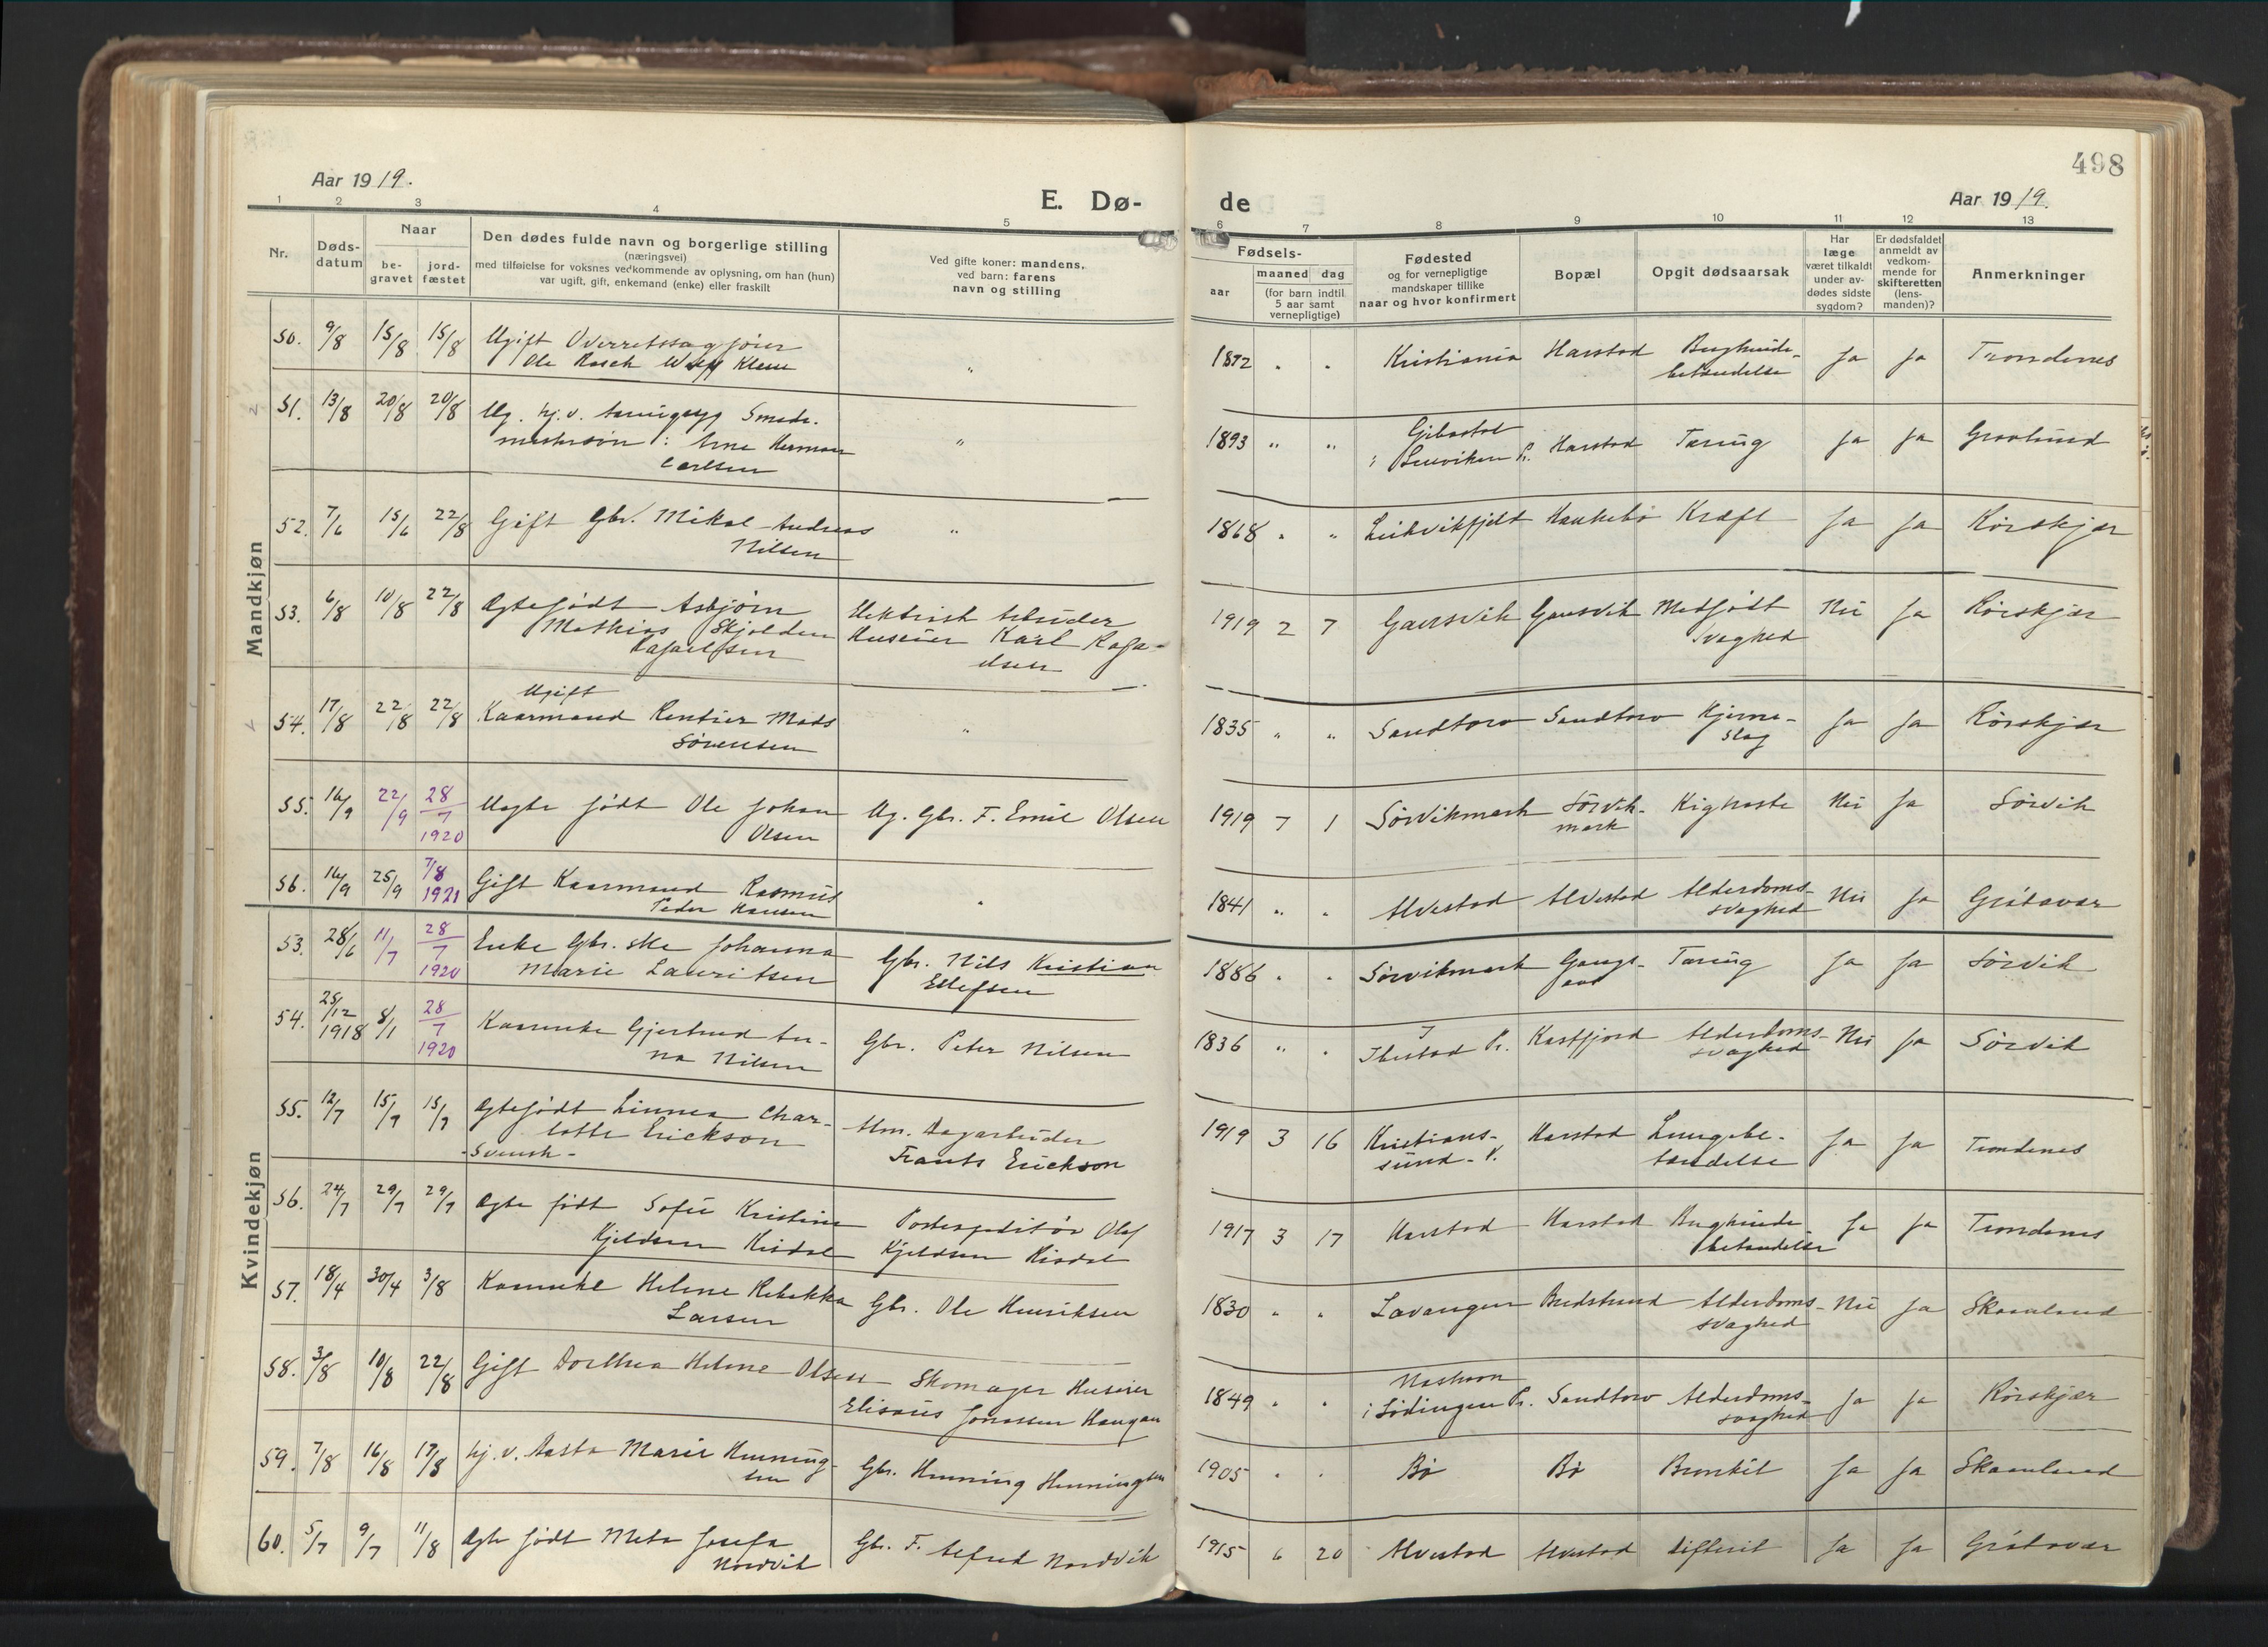 498
Aar 1919.
E. Dø-
de
Aar 1919.
1 2 3 4 5 6 7 8 9 10 11 12 13
Nr.
Døds-
datum
Naar
be-
gravet
jord-
fæstet
Den dødes fulde navn og borgerlige stilling
(næringsvei)
med tilføielse for voksnes vedkommende av oplysning, om han (hun)
var ugift, gift, enkemand (enke) eller fraskilt
Ved gifte koner: mandens,
ved barn: farens
navn og stilling
Fødsels-
aar
maaned dag
(for barn indtil
5 aar samt
vernepligtige)
Fødested
og for vernepligtige
mandskaper tillike
naar og hvor konfirmert
Bopæl
Opgit dødsaarsak
Har
læge
været tilkaldt
under av-
dødes sidste
sygdom?
Er dødsfaldet
anmeldt av
vedkom-
mende for
skifteretten
(lens-
manden)?
Anmerkninger
Mandkjøn
50. 9/8 15/8 15/8 Ugift Overretssagfører
Ole Rasch Klem
" 1872 " " Kristiania Harstad Bughinde-
betændelse Ja Ja Trondenes
51. 13/8 20/8 20/8 Ug. hj.v. tæringssyg Smede-
mestersøn: Arne Herman
Carlsen
" 1893 " " Gibostad
i Lenviken P. Harstad Tæring Ja Ja Gravlund
52. 7/6 15/6 22/8 Gift Gbr. Mikal Andreas
Nilsen
" 1868 " " Leikvikfjeld Haukebø Kræft Ja Ja Rørskjær
53. 6/8 10/8 22/8 Ægtefødt Asbjørn
Mathias Skjoldun
Rafaelsen
Elektrisk Arbeider
Huseier Karl Rafa-
elsen
1919 2 7 Gausvik Gausvik Medfødt
svaghed Nei Ja Rørskjær
54. 17/8 22/8 22/8 Ugift
Kaarmand Rentier Mads
Sørensen
" 1835 " " Sandtorv Sandtorv Hjerne-
slag Ja Ja Rørskjær
55. 16/9 22/9 28/7 1920 Uægte født Ole Johan
Olsen
Ug. Gbr. F. Emil Olsen
1919 7 1 Sørvikmark Sørvik-
mark Kighoste Nei Ja Sørvik
56. 16/9 25/9 7/8 1921 Gift Kaarmand Rasmus
Peder Hansen
" 1841 " " Alvestad Alvestad Alderdoms-
svaghed Nei Ja Grøtavær
Kvindekjøn
53. 28/6 11/7 28/7 1920 Enke Gbr.ske Johanna
Marie Lauritsen
Gbr. Nils Kristian
Ellefsen
1886 " " Sørvikmark Gangs-
aas Tæring Ja Ja Sørvik
54. 25/12 1918 8/1 28/7 1920 Kaarenke Gjertrud An-
na Nilsen
Gbr. Peter Nilsen
1836 " " I
Ibestad P. Kastfjord Alderdoms-
svaghed Nei Ja Sørvik
55. 12/7 15/7 15/7 Ægtefødt Linnea Char-
lotte Erickson
-Svensk-
Alm. Dagarbeider
Frants Erickson
1919 3 16 Kristians-
sund. N. Harstad Lungebe-
tændelse Ja Ja Trondenes
56. 24/7 29/7 29/7 Ægte født Sofie Kristine
Kjeldsen Risdal
Postexpeditør Olaf
Kjeldsen Risdal
1917 3 17 Harstad Harstad Bughinde-
betændelse Ja Ja Trondenes
57. 18/4 30/4 3/8 Kaarenke Helene Rebekka
Larsen
Gbr. Ole Henriksen
1830 " " Lavangen Bredstrand Alderdoms-
svaghed Nei Ja Skaanland
58. 3/8 10/8 22/8 Gift Dorthea Helene Olsen
Skomager Huseier
Elisæus Jonassen Haugan
1849 " "
i Lødingen P. Sandtorv Alderdoms-
svaghed Ja Ja Rørskjær
59. 7/8 16/8 17/8 hj.v. Aasta Marie Henning-
sen
Gbr. Henning Henningsen
1905 " " Bø Bø Bronkit Ja Ja Skaanland
60. 5/7 9/7 11/8 Ægte født Meta Josefa
Nordvik
Gbr. F. Alfred Nordvik
1915 6 20 Alvestad Alvestad Difterit Ja Ja Grøtavær